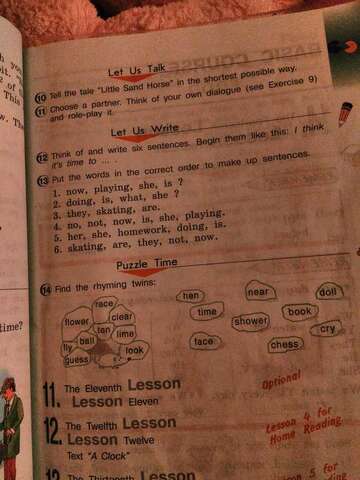 Let Us Talk
10 Tell the tale "Little Sand Horse" in the shortest possible way.
11 Choose a partner. Think of your own dialogue (see Exercise 9)
and role-play it.
Let Us Write
12 Think of and write six sentences. Begin them like this: I think
it's time to ... .
13 Put the words in the correct order to make up sentences.
1. now, playing, she, is ?
2. doing, is, what, she ?
3. they, skating, are.
4. no, not, now, is, she, playing.
5. her, she, homework, doing, is.
6. skating, are, they, not, now.
Puzzle Time
14 Find the rhyming twins:
race
flower clear
ten
ball lime
fly
guess look
hen near doll
time book
shower cry
face chess
11. The Eleventh Lesson
Lesson Eleven
Optional
12. The Twelfth Lesson
Lesson Twelve
Text "A Clock"
Lesson 4 for
Home Reading
13. The Thirteenth Lesson
Lesson 5 for
time?
This